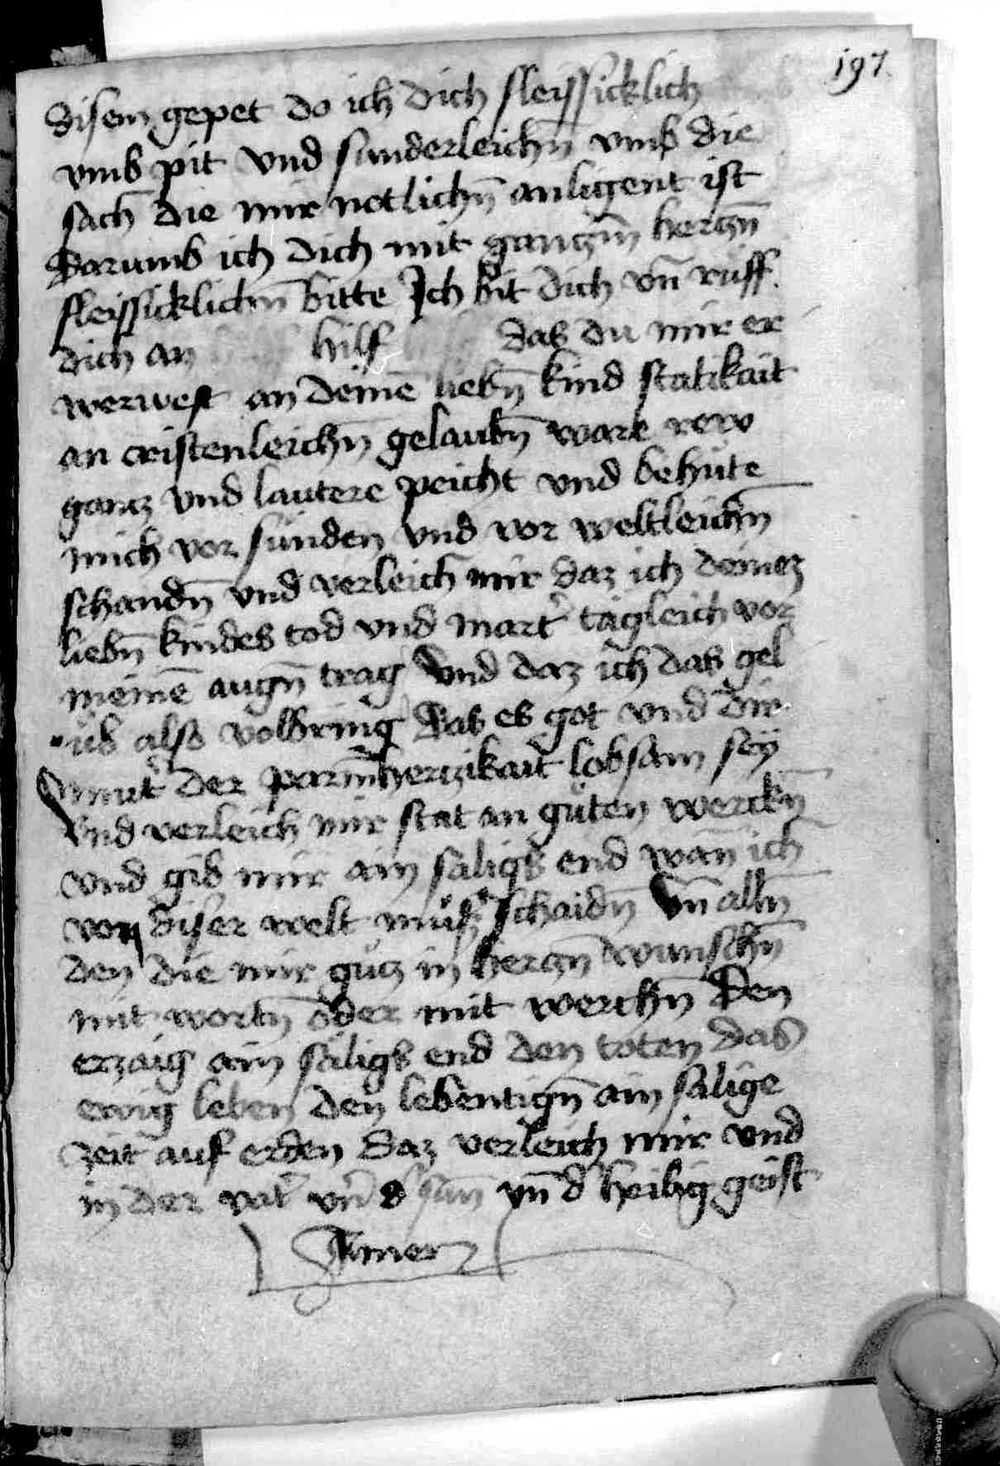 197.
disem gepet do ich dich fleissicklich
vmb pit vnd sunderleichn̄ vmb die
sach die mir notlichn̄ anligent ist
Darumb ich dich mit ganczm̄ herczn̄
fleissicklichn̄ bitte Ich bit dich vn̄ rüff
dich an hilf das du mir er
werwest an deinē liebn̄ kind statikait
an cristenleichn̄ gelaubn̄ ware rew
gancz vnd lautere peicht vnd behüte
mich vor sünden vnd vor weltleichn̄
schandn̄ vnd verleich mir daz ich deinez
liebn̄ kindes tod vnd mart' tägleich vor
meinē augn̄ trag Vnd daz ich das gel
üb also volbring Das es got vnd dir
mut' der parmherczikait lobsam sey
Vnd verleich mir stat an güten werckn̄
vnd gib mir ain saligs end wan̄ ich
von diser welt müß schaidn̄ Vn̄ alln̄
den die mir gücz in herczn̄ wunschn̄
mit wortn̄ oder mit werckn̄ Den
erzaig ain säligs end den toten das
ewig leben den lebentign̄ ain salige
zeit auf erden Daz verleich mir vnd
in der vat' vn̄ d' sun̄ vn̄ d' heilig geist
Amen